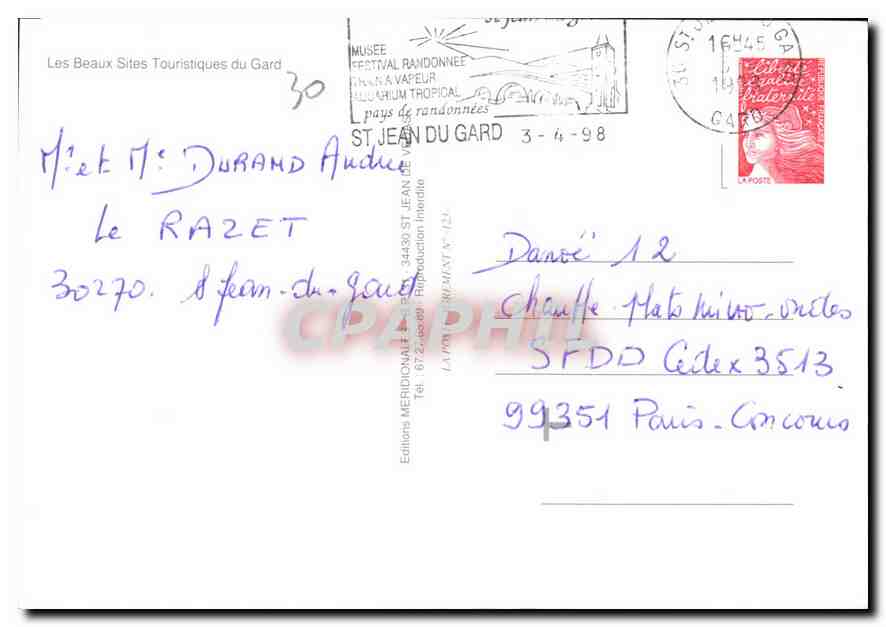 Les Beaux Sites Touristiques du Gard
30
MUSEE
FESTIVAL RANDONNEE
TRAIN A VAPEUR
AQUARIUM TROPICAL
pays de randonnées
ST JEAN DU GARD 3-4-98
30 ST JEAN DU GARD
16H45
GARD
liberté
égalité
fraternité
LA POSTE
Mr et Me DURAND André
Le RAZET
30270. St Jean-du-Gard
Editions MERIDIONALES 34430 ST JEAN DE VEDAS
Reproduction Interdite
LA POSTE AGREMENT N°
CPAPHIL
Danoé 12
Chauffe-Plats Micro-ondes
SFDD Cédex 3513
99351 Paris-Concours